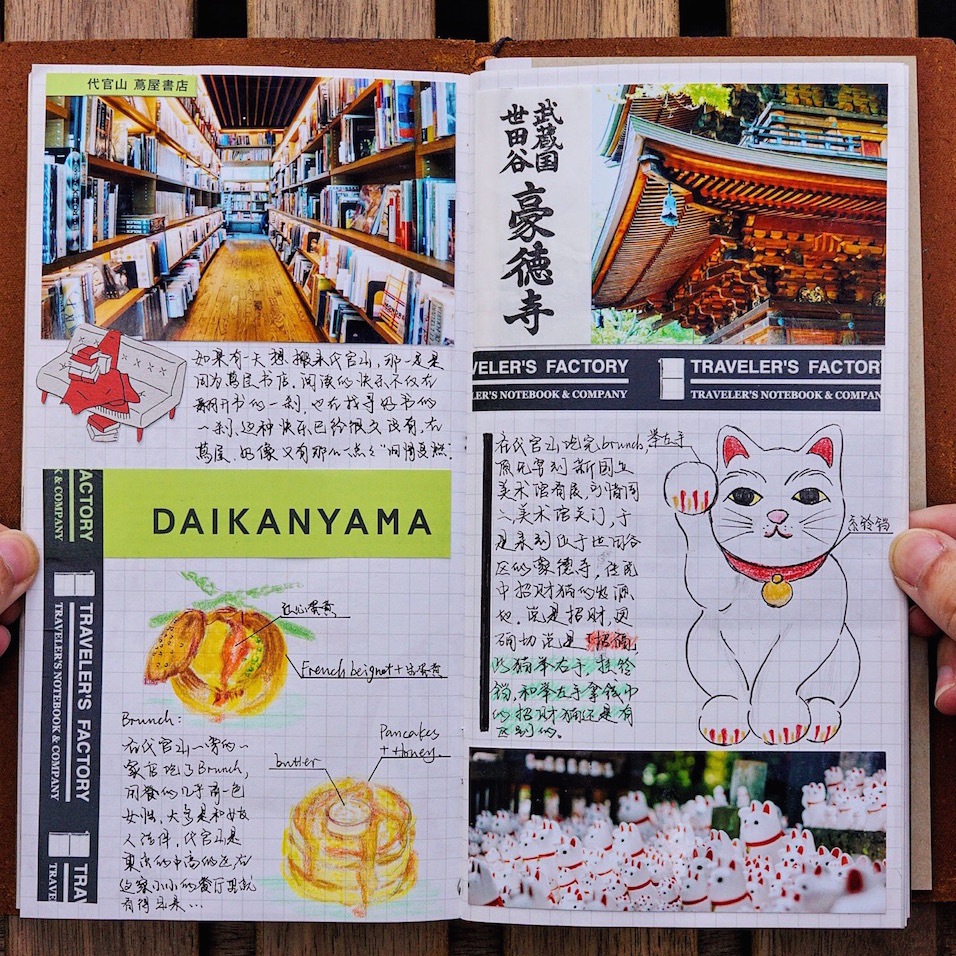 代官山 蔦屋書店
如果有一天想搬来代官山,那一定是
因为蔦屋书店,阅读的快乐不仅在
翻开书的一刹,也在找寻好书的
一刹,这种快乐已经很久没有,在
蔦屋,好像又有那么一点点
ACTORY
& COMPANY
DAIKANYAMA
TRAVELER'S FACTORY
TRAVELER'S NOTEBOOK & COMPANY
TRA
TRAVE
French beignet+
Brunch:
在代官山一旁的一
家店吃了Brunch,
用餐的几乎清一色
女性,大多是和女友
人结伴,代官山是
东京的中高档区,在
这家小小的餐厅里就
有得见来…
butter
Pancakes
+ Honey
武蔵国
世田谷
豪徳寺
VELER'S FACTORY
LER'S NOTEBOOK & COMPANY
TRAVELER'S FACTOR
TRAVELER'S NOTEBOOK & COMPAN
在代官山吃完brunch,
原先冲到新国立
美术馆看展,可惜周
二美术馆关门,于
是来到位于世田谷
区的豪德寺,在见
中招财猫的发源
地,说是招财,更
确切说是「招福」
此猫举右手,挂铃
铛,和举左手拿钱币
的招财猫还是有
区别的。
举左手
系铃铛